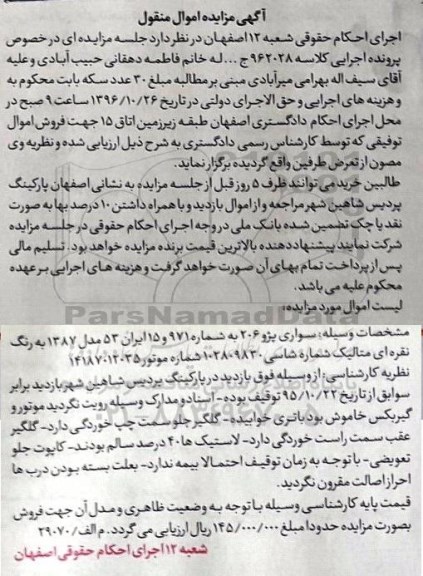 آگهی مزایده اموال منقول
اجرای احکام حقوقی شعبه ۱۲ اصفهان در نظر دارد جلسه مزایده ای در خصوص
پرونده اجرایی کلاسه ۹۶۲۰۲۸ ج ...له خانم فاطمه دهقانی حبیب آبادی و علیه
آقای سیف اله بهرامی میرآبادی مبنی بر مطالبه مبلغ ۳۰ عدد سکه بابت محکوم به
و هزینه های اجرایی و حق الاجرای دولتی در تاریخ ۱۳۹۶/۱۰/۲۶ ساعت ۹ صبح در
محل اجرای احکام دادگستری اصفهان طبقه زیرزمین اتاق ۱۵ جهت فروش اموال
توقیفی که توسط کارشناس رسمی دادگستری به شرح ذیل ارزیابی شده و نظریه وی
مصون از تعرض طرفین واقع گردیده برگزار نماید.
طالبین خرید می توانند ظرف ۵ روز قبل از جلسه مزایده به نشانی اصفهان پارکینگ
پردیس شاهین شهر مراجعه و از اموال بازدید و با همراه داشتن ۱۰ درصد بها به صورت
نقد یا چک تضمین شده بانک ملی در وجه اجرای احکام حقوقی در جلسه مزایده
شرکت نمایند پیشنهاد دهنده بالاترین قیمت برنده مزایده خواهد بود. تسلیم مالی
پس از پرداخت تمام بهای آن صورت خواهد گرفت و هزینه های اجرایی بر عهده
محکوم علیه می باشد.
لیست اموال مورد مزایده:
ParsNamadData
مشخصات وسیله: سواری پژو ۲۰۶ به شماره ۹۷۱ و ۱۵ ایران ۵۳ مدل ۱۳۸۷ به رنگ
نقره ای متالیک شماره شاسی ۱۰۲۸۰۹۸۳۰ شماره موتور ۱۴۱۸۷۰۱۲۰۳۵
نظریه کارشناسی: از وسیله فوق بازدید در پارکینگ پردیس شاهین شهر بازدید برابر
سوابق از تاریخ ۹۵/۱۰/۲۲ توقیف بوده - اسناد و مدارک وسیله رویت نگردید موتور و
گیربکس خاموش بود باتری خوابیده - گلگیر جلو سمت چپ خوردگی دارد - گلگیر
عقب سمت راست خوردگی دارد - لاستیک ها ۴۰ درصد سالم بودند - کاپوت جلو
تعویضی - با توجه به زمان توقیف احتمالا بیمه ندارد - بعلت بسته بودن درب ها
احراز اصالت مقرون نگردید.
قیمت پایه کارشناسی وسیله با توجه به وضعیت ظاهری و مدل آن جهت فروش
بصورت مزایده حدودا مبلغ ۱۴۵/۰۰۰/۰۰۰ ریال ارزیابی می گردد. م الف/۲۹۰۷۰
شعبه ۱۲ اجرای احکام حقوقی اصفهان